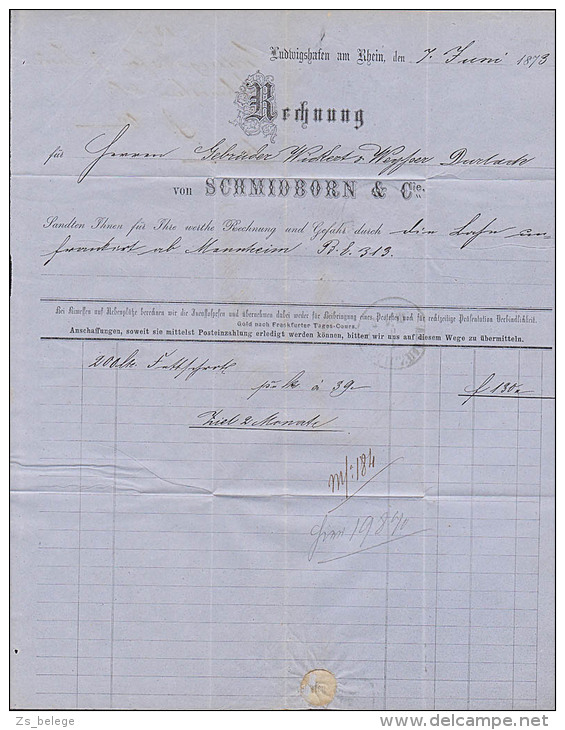 Ludwigshafen am Rhein, den 7. Juni 1873
Rechnung
für Herren Gebrüder Weysser Durlach
von SCHMIDBORN & Cie.
Sandten Ihnen für Ihre werthe Rechnung und Gefahr durch die Bahn un-
frankirt ab Mannheim B. C. 313.
Bei Rimessen auf Nebenplätze berechnen wir die Incassospesen und übernehmen dabei weder für Beibringung eines Protestes noch für rechtzeitige Präsentation Verbindlichkeit.
Gold nach Frankfurter Tages-Cours.
Anschaffungen, soweit sie mittelst Posteinzahlung erledigt werden können, bitten wir uns auf diesem Wege zu übermitteln.
200 Fettschrot
à 39 f 130
Ziel 2 Monate
184
Zs_belege
delcampe.net